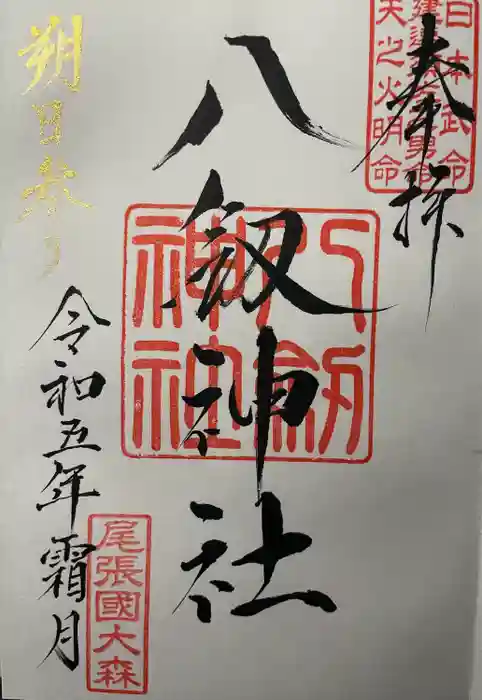 奉拝
日本武命
建速須佐之男命
天之火明命
八剱神社
八剱
神社
朔日参り
令和五年霜月
尾張國大森